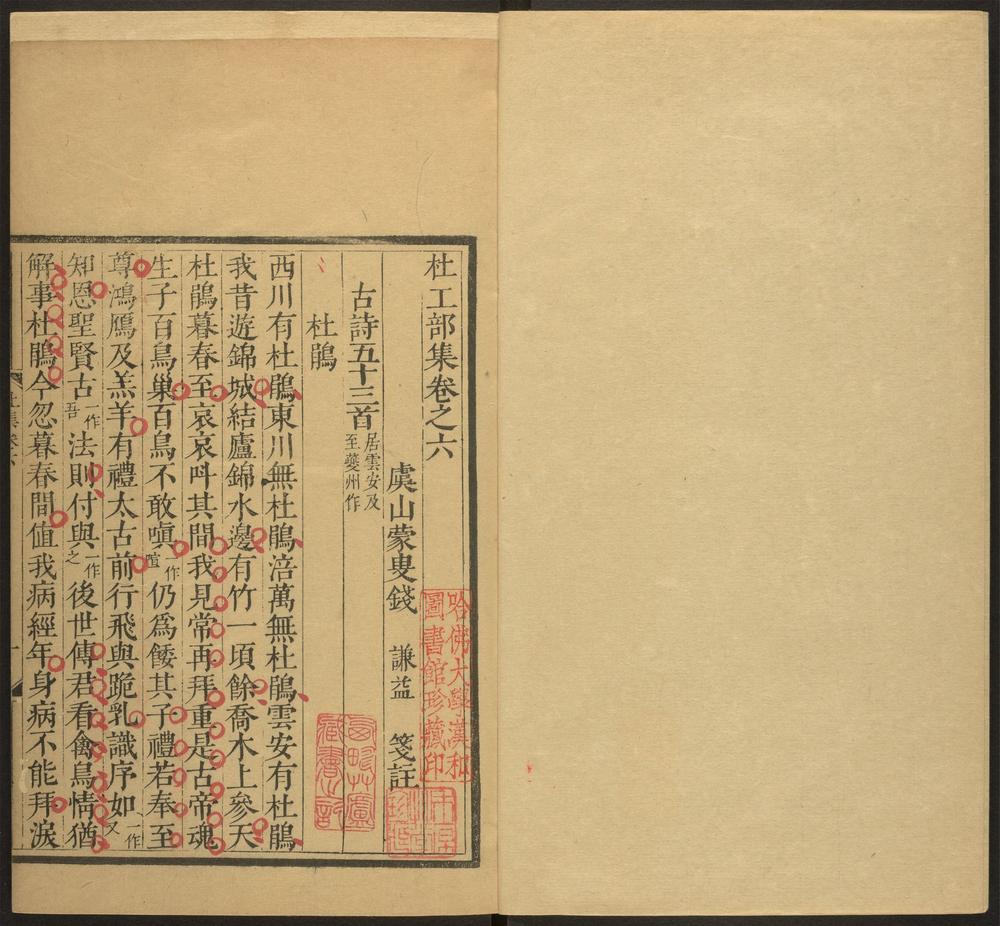 杜工部集卷之六
虞山蒙叟錢 謙益 箋註
古詩五十三首居雲安及至夔州作
杜鵑
西川有杜鵑東川無杜鵑涪萬無杜鵑雲安有杜鵑
我昔遊錦城結廬錦水邊有竹一頃餘喬木上參天
杜鵑暮春至哀哀呌其間我見常再拜重是古帝魂
生子百鳥巢百鳥不敢嗔一作喧仍爲餧其子禮若奉至
尊鴻鴈及羔羊有禮太古前行飛與跪乳識序如一作又
知恩聖賢古一作吾法則付與一作之後世傳君看禽鳥情猶
解事杜鵑今忽暮春間值我病經年身病不能拜淚
哈佛大學漢和
圖書館珍藏印